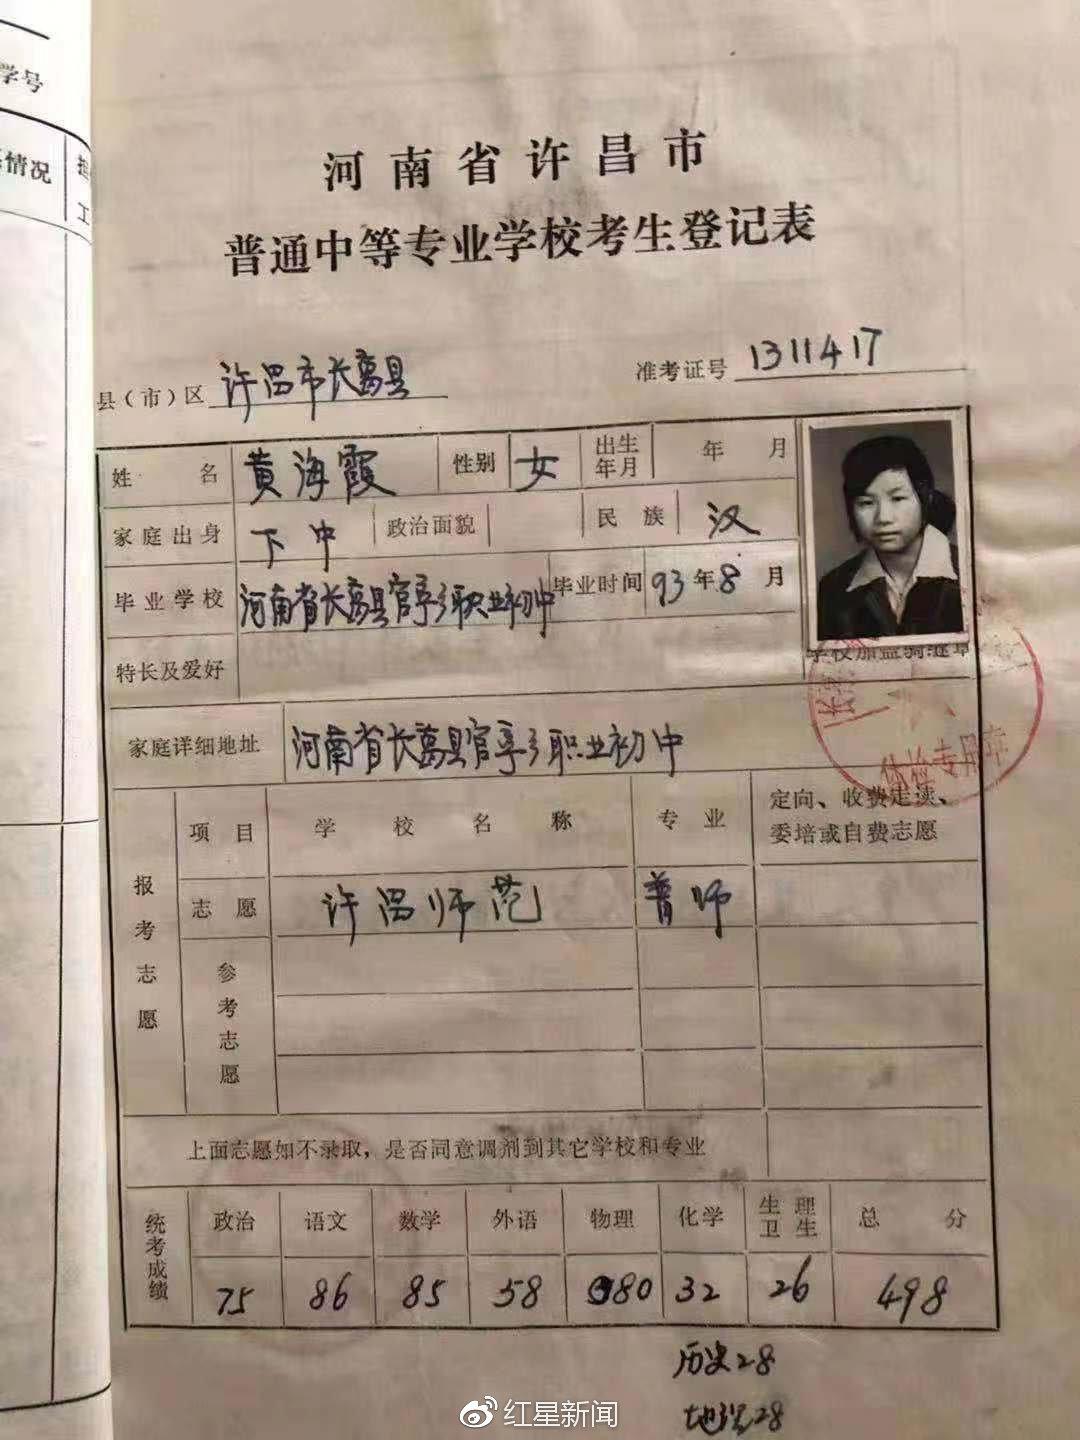 学号
情况
工
河南省许昌市
普通中等专业学校考生登记表
县（市）区 许昌市长葛县 准考证号 1311417
姓名 黄海霞 性别 女 出生年月 年 月
家庭出身 下中 政治面貌 民族 汉
毕业学校 河南省长葛县官亭乡职业初中 毕业时间 93年8月
特长及爱好
学校加盖骑缝章
体检专用章
家庭详细地址 河南省长葛县官亭乡职业初中
报考志愿 项目 学校名称 专业 定向、收费走读、
委培或自费志愿
志愿 许昌师范 普师
参考志愿
上面志愿如不录取，是否同意调剂到其它学校和专业
统考成绩 政治 语文 数学 外语 物理 化学 生理卫生 总分
75 86 85 58 80 32 26 498
历史28
地理28
红星新闻